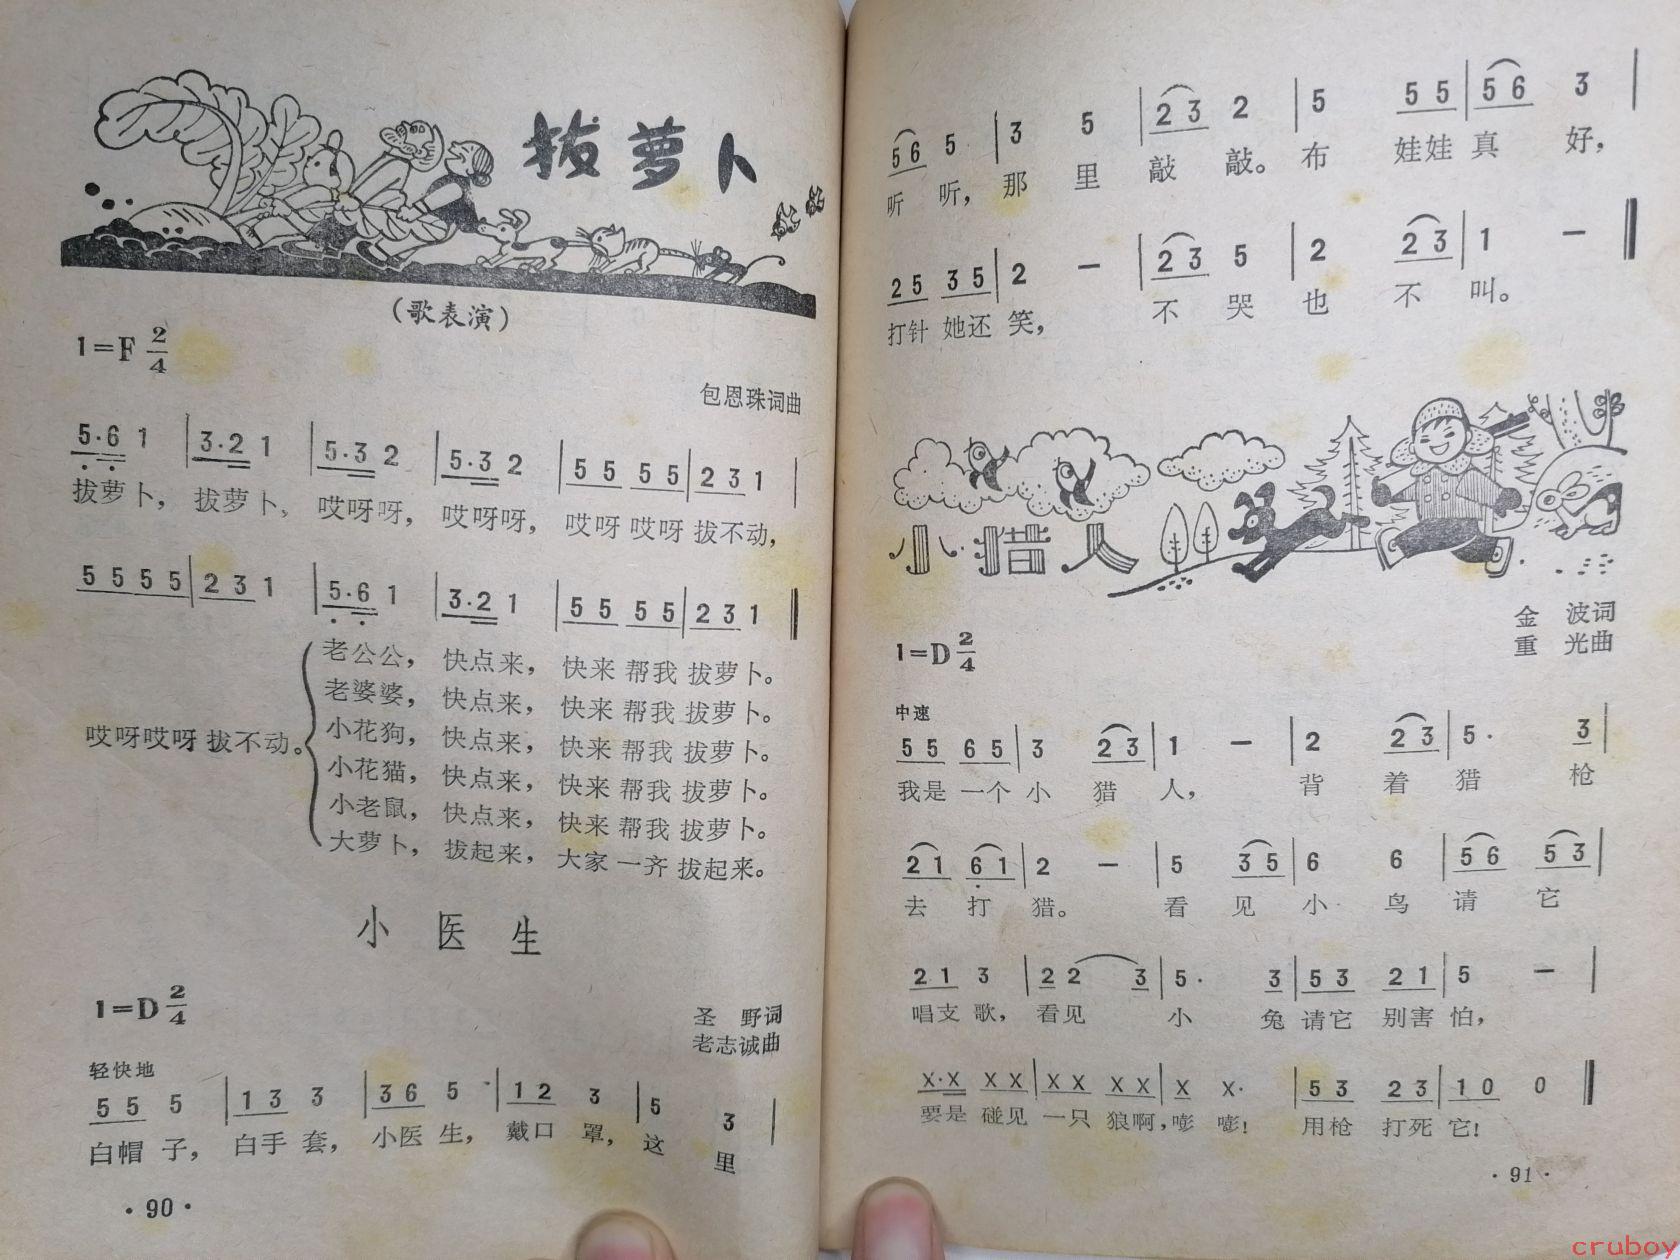 拔萝卜
（歌表演）
1=F 2/4
包恩珠词曲
5·6 1 | 3·2 1 | 5·3 2 | 5·3 2 | 5 5 5 5 | 2 3 1 |
拔萝卜， 拔萝卜， 哎呀呀， 哎呀呀， 哎呀 哎呀 拔不动，
5 5 5 5 | 2 3 1 | 5·6 1 | 3·2 1 | 5 5 5 5 | 2 3 1 ‖
哎呀哎呀 拔不动。
老公公， 快点来， 快来 帮我 拔萝卜。
老婆婆， 快点来， 快来 帮我 拔萝卜。
小花狗， 快点来， 快来 帮我 拔萝卜。
小花猫， 快点来， 快来 帮我 拔萝卜。
小老鼠， 快点来， 快来 帮我 拔萝卜。
大萝卜， 拔起来， 大家 一齐 拔起来。
小医生
1=D 2/4
圣 野词
老志诚曲
轻快地
5 5 5 | 1 3 3 | 3 6 5 | 1 2 3 | 5 3 |
白帽 子， 白手 套， 小医 生， 戴口 罩， 这 里
·90·
5 6 5 | 3 5 | 2 3 2 | 5 5 5 | 5 6 3 |
听 听， 那 里 敲 敲。 布 娃娃 真 好，
2 5 3 5 | 2 － | 2 3 5 | 2 2 3 | 1 － ‖
打针 她还 笑， 不 哭 也 不 叫。
小猎人
金 波词
重 光曲
1=D 2/4
中速
5 5 6 5 | 3 2 3 | 1 － | 2 2 3 | 5· 3 |
我是 一个 小 猎 人， 背 着 猎 枪
2 1 6 1 | 2 － | 5 3 5 | 6 6 | 5 6 5 3 |
去 打 猎。 看 见 小 鸟 请 它
2 1 3 | 2 2 3 | 5· 3 | 5 3 2 1 | 5 － |
唱支 歌， 看见 小 兔 请它 别害 怕，
X·X X X | X X X X | X X· | 5 3 2 3 | 1 0 0 ‖
要是 碰见 一只 狼啊， 嘭 嘭！ 用枪 打死 它！
·91·
cruboy